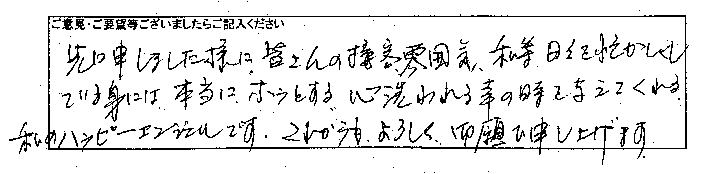 ご意見・ご要望等ございましたらご記入ください
先に申しました様に、皆さんの接客、雰囲気、私等日々忙がしくし
ている身には、本当に、ホッとする、心洗われる幸の時を与えてくれる、
私のハッピーエンジェルです。これからも、よろしく、御願い申し上げます。